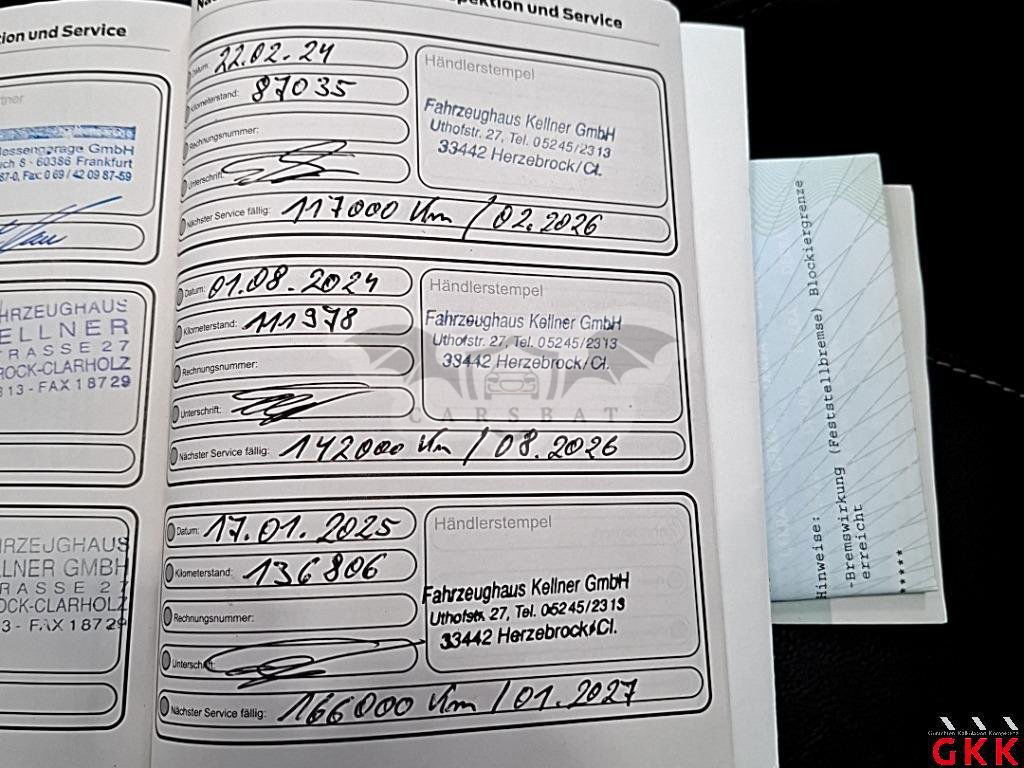 tion und Service
rtner
Messengarage GmbH
ich 8 - 60386 Frankfurt
87-0, Fax: 0 69 / 42 09 87-59
HRZEUGHAUS
ELLNER
TRASSE 27
ROCK-CLARHOLZ
313 - FAX 18729
HRZEUGHAUS
LLNER GMBH
TRASSE 27
OCK-CLARHOLZ
3 - FAX 18729
pektion und Service
Datum: 22.02.24
Kilometerstand: 87035
Rechnungsnummer:
Unterschrift:
Händlerstempel
Fahrzeughaus Kellner GmbH
Uthofstr. 27, Tel. 05245/2313
33442 Herzebrock/Cl.
Nächster Service fällig: 117000 Km / 02.2026
Datum: 01.08.2024
Kilometerstand: 111978
Rechnungsnummer:
Unterschrift:
Händlerstempel
Fahrzeughaus Kellner GmbH
Uthofstr. 27, Tel. 05245/2313
33442 Herzebrock/Cl.
CARSBAT
Nächster Service fällig: 142000 Km / 08.2026
Datum: 17.01.2025
Kilometerstand: 136806
Rechnungsnummer:
Unterschrift
Händlerstempel
Fahrzeughaus Kellner GmbH
Uthofstr. 27, Tel. 05245/2313
33442 Herzebrock/Cl.
Nächster Service fällig: 166000 Km / 01.2027
Hinweise:
-Bremswirkung (Feststellbremse) Blockiergrenze
erreicht
*****
Gutachten Kalkulation Kompetenz
GKK